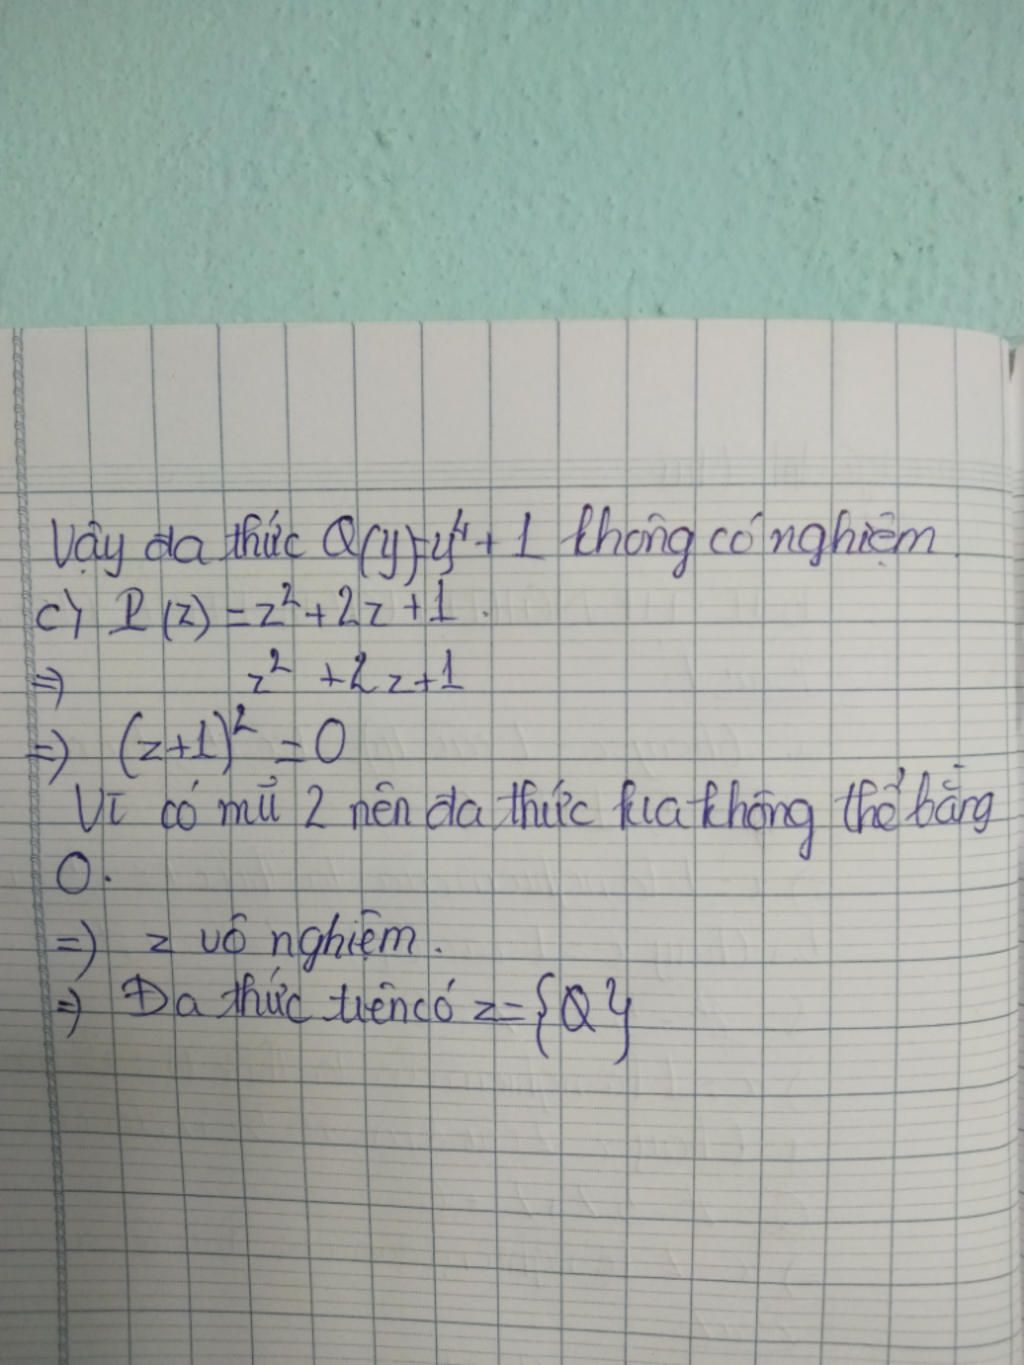 Vậy đa thức Q(y)=y⁴+1 không có nghiệm.
c) P(z) = z²+2z+1.
=> z² +2z+1
=> (z+1)² = 0
Vì có mũ 2 nên đa thức kia không thể bằng
0.
=> z vô nghiệm.
=> Đa thức trên có z={Q}